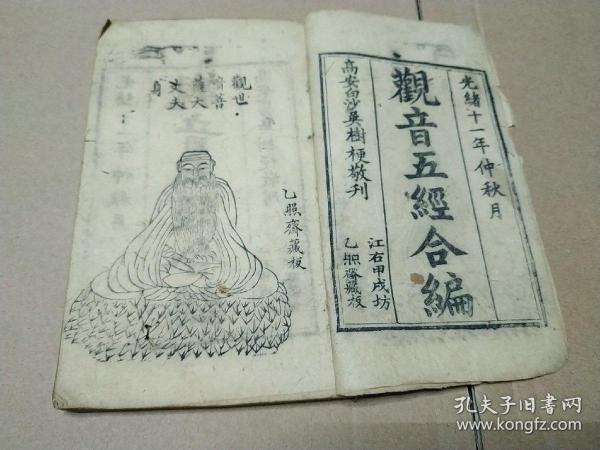 光緒十一年仲秋月
觀音五經合編
高安白沙吳樹梗敬刊
江右甲戌坊
乙照齋藏板
觀世
音菩
薩大
丈夫
身
乙照齋藏板
孔夫子旧书网
www.kongfz.com